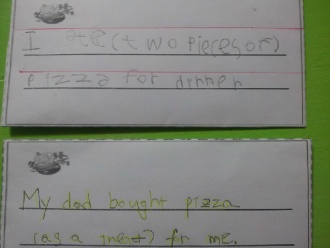 I ate (two pieces of)
pizza for dinner
My dad bought pizza
(as a treat) for me.